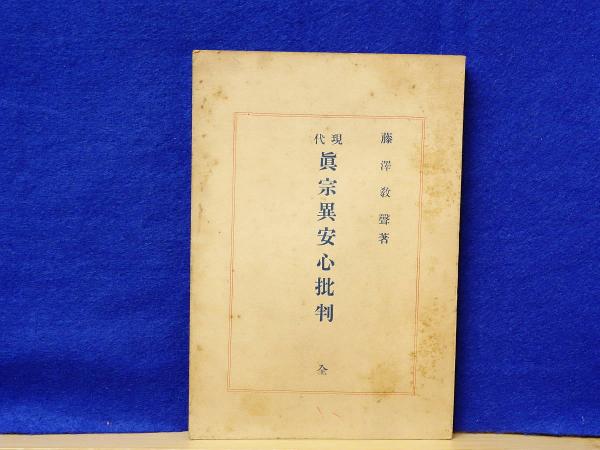 藤澤教聲著
現代
眞宗異安心批判
全